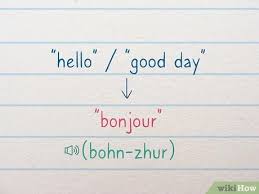 "hello" / "good day"
"bonjour"
(bohn-zhur)
wikiHow